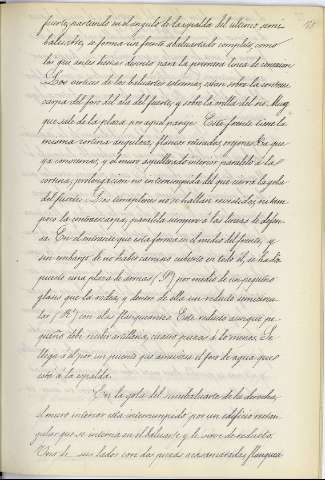 fuerte, partiendo en el ángulo de la espalda del último semi
baluarte, se forma un frente abaluartado completo, como
los que antes hemos descrito para la primera línea de
Los vértices de los baluartes estremos, están sobre la contraes
carpa del foso del ala del fuerte, y sobre la orilla del río
que sale de la plaza por aquel parage. Este frente tiene la
misma cortina angulosa, flancos retirados, orejones
ya conocemos, y el muro aquillerado interior paralelo á la
cortina; prolongación no interrumpida del que cierra la gola
del fuerte. Los terraplenes no se hallan revestidos, ni tam
poco la contraescarpa, paralela siempre á las líneas de defen
sa. En el entrante que esta forma en el medio del frente, y
sin embargo de no haber camino cubierto en todo él, se ha dis
puesto una plaza de armas (P) por medio de un pequeño
glasis que la rodea, y dentro de ella un reducto semicircu
lar (R) con alas flanqueantes. Este reducto aunque pe
queño debe recibir artillería, cuatro piezas á lo menos. Se
llega á él por un puente que atraviesa el foso de agua que
está á la espalda.
En la gola del semibaluarte de la derecha,
el muro interior está interrumpido por un edificio rectan
gular que se interna en el baluarte y le sirve de reducto.
Uno de sus lados con dos piezas acasamatadas, flanquea